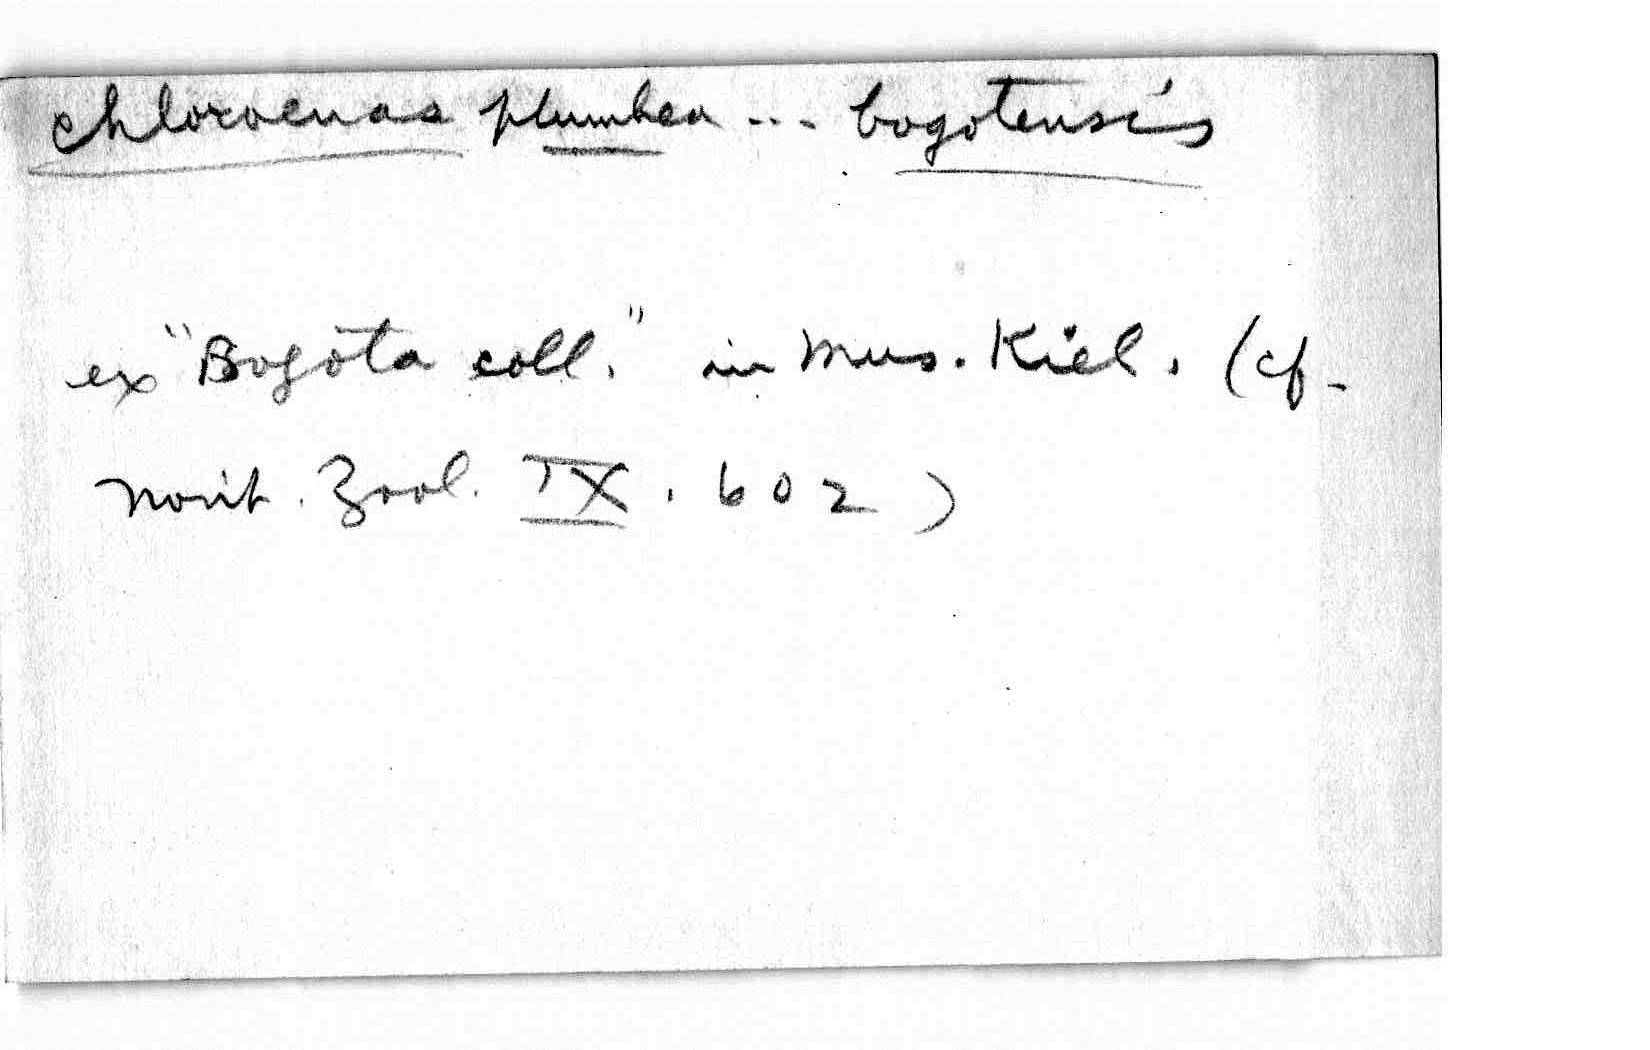 Chloroenas plumbea ... bogotensis
ex "Bogota coll." in Mus. Kiel. (cf.
Novit. Zool. IX. 602)